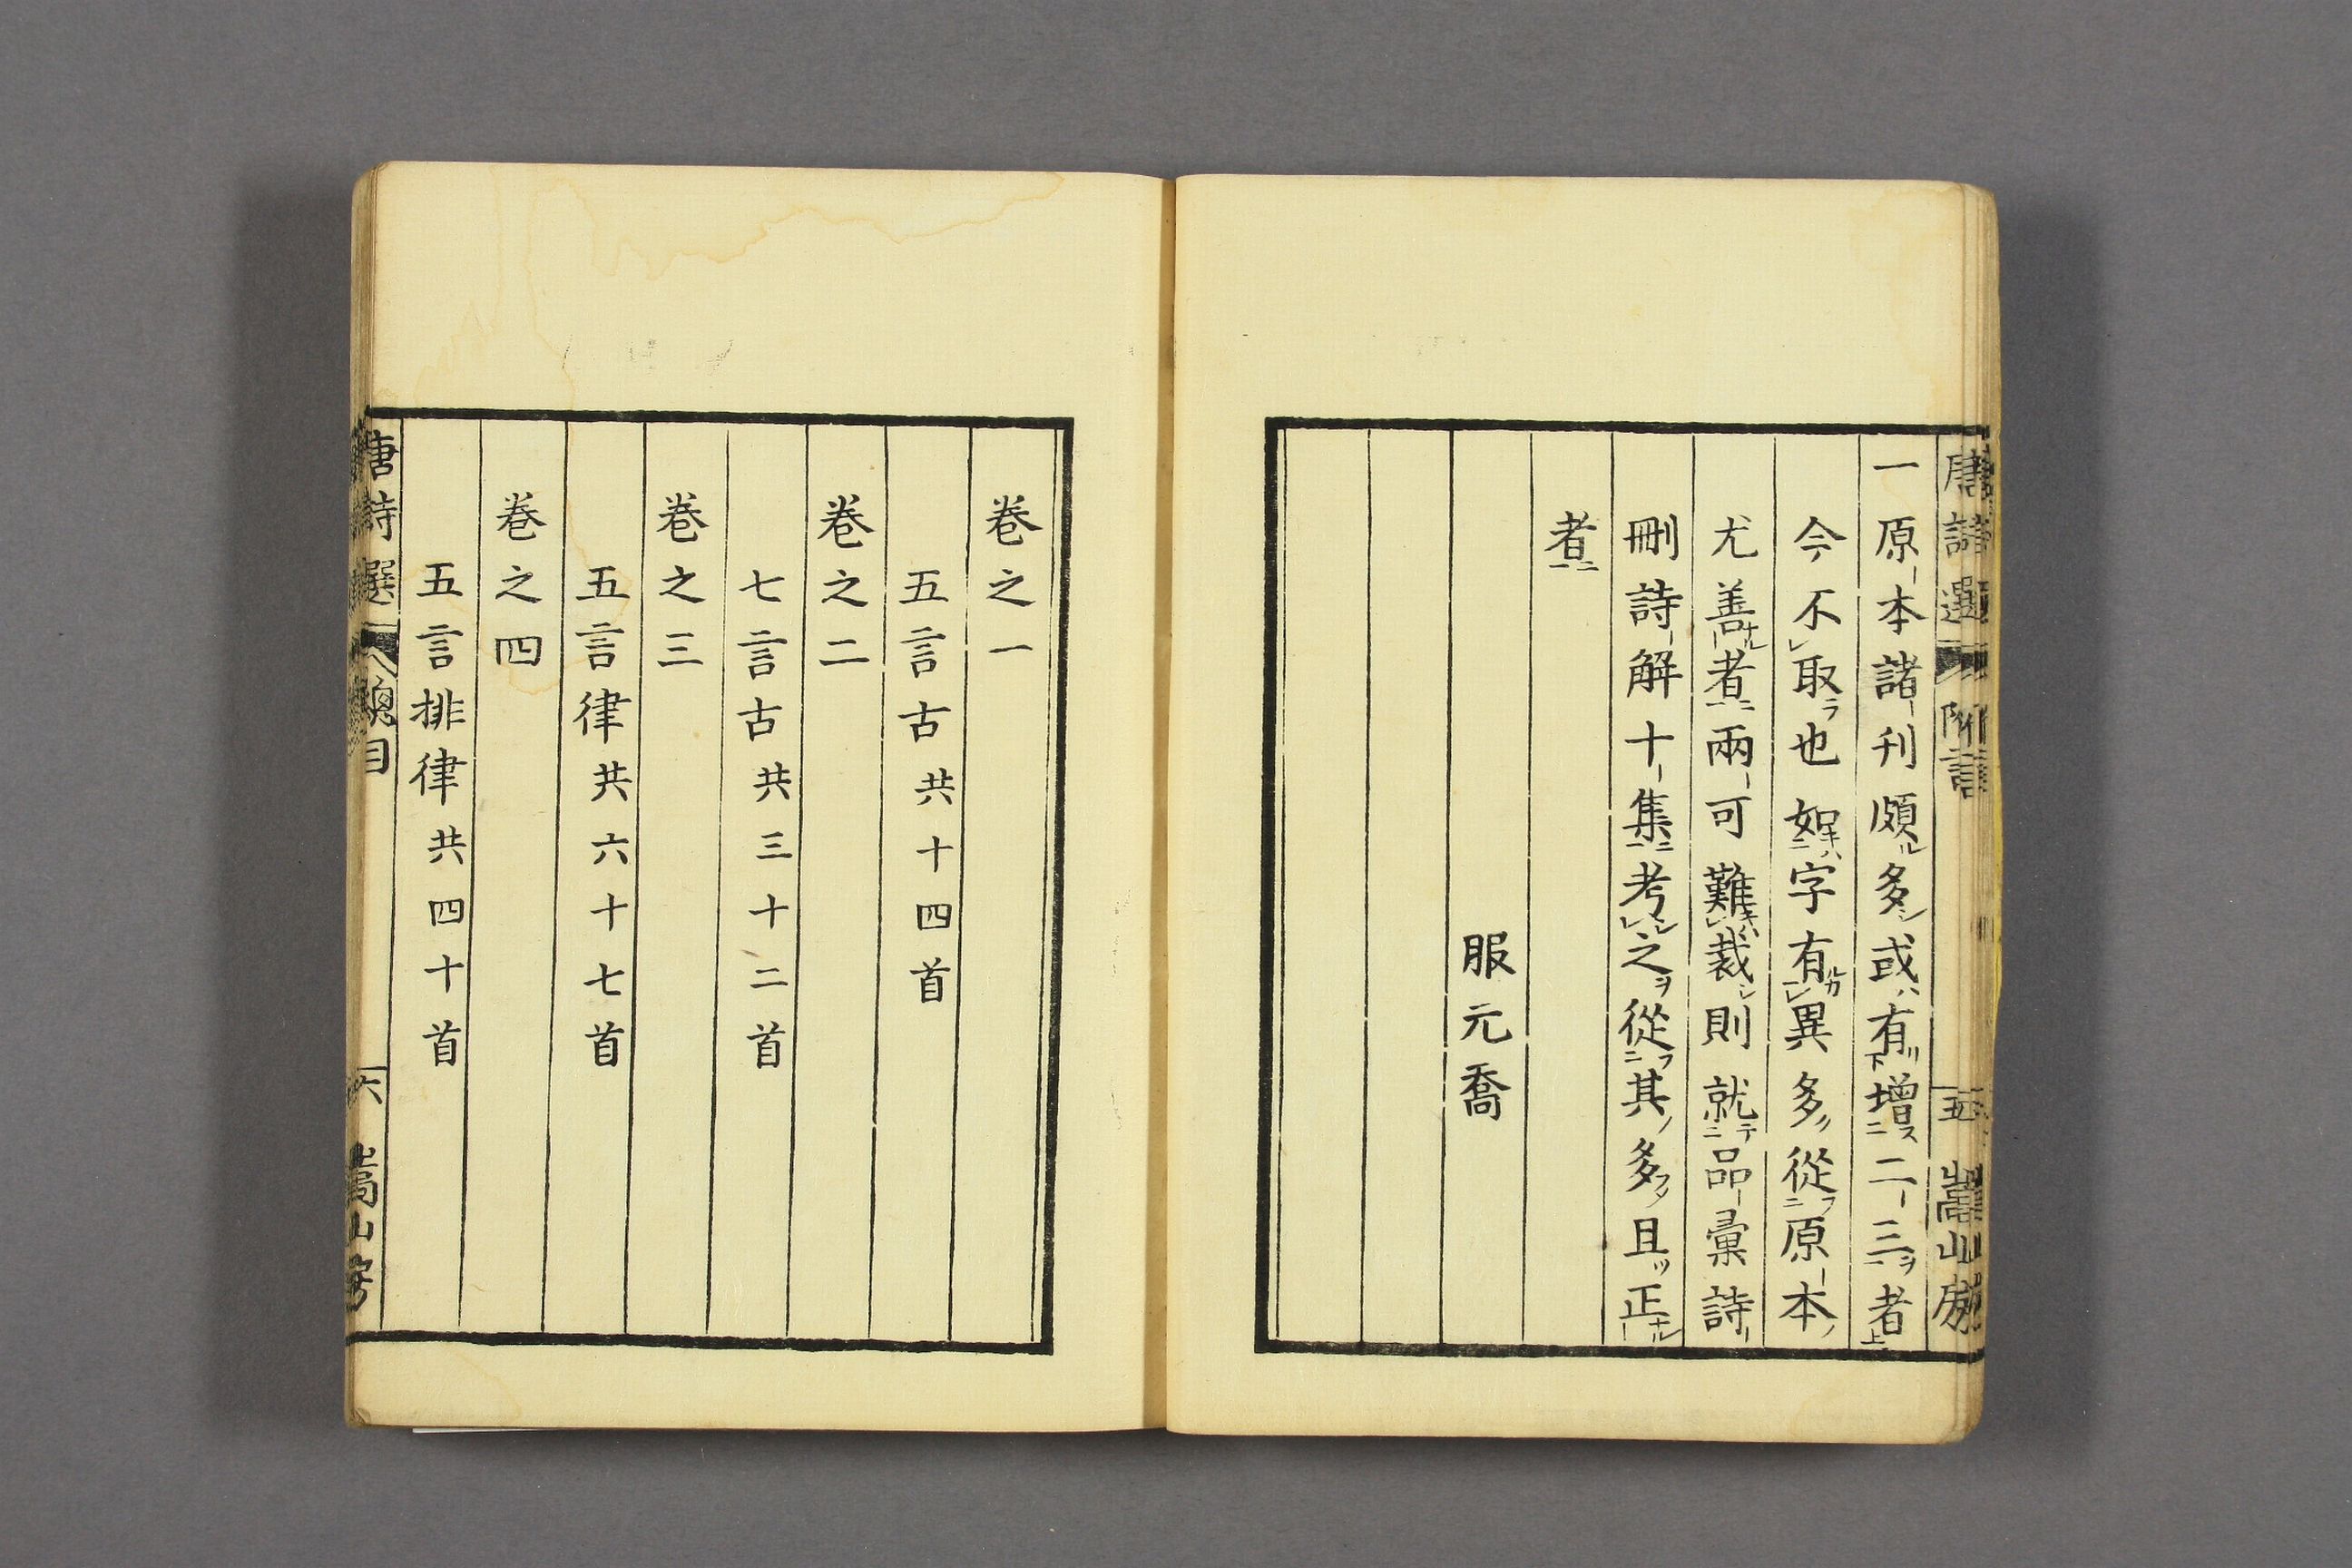 唐詩選 附言 五 嵩山房
一原本諸刊頗多或有增二三者
今不取也如字有異多從原本
尤善者兩可難裁則就品彙詩
刪詩解十集考之從其多且正
者
服元喬
卷之一
五言古共十四首
卷之二
七言古共三十二首
卷之三
五言律共六十七首
卷之四
五言排律共四十首
唐詩選 總目 六 嵩山房